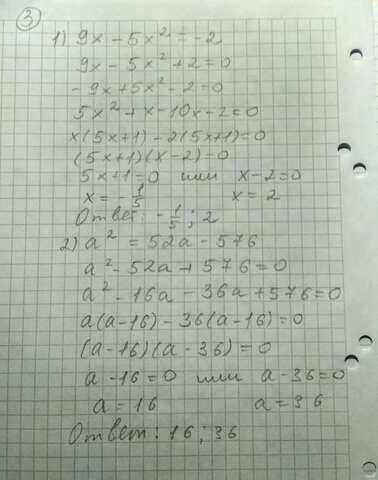 ③
1) 9x - 5x² = -2
9x - 5x² + 2 = 0
- 9x + 5x² - 2 = 0
5x² + x - 10x - 2 = 0
x(5x+1) - 2(5x+1) = 0
(5x+1)(x-2) = 0
5x+1=0 или x-2=0
x = -1/5 x = 2
Ответ: -1/5; 2
2) a² = 52a - 576
a² - 52a + 576 = 0
a² - 16a - 36a + 576 = 0
a(a-16) - 36(a-16) = 0
(a-16)(a-36) = 0
a-16=0 или a-36=0
a = 16 a = 36
Ответ: 16; 36